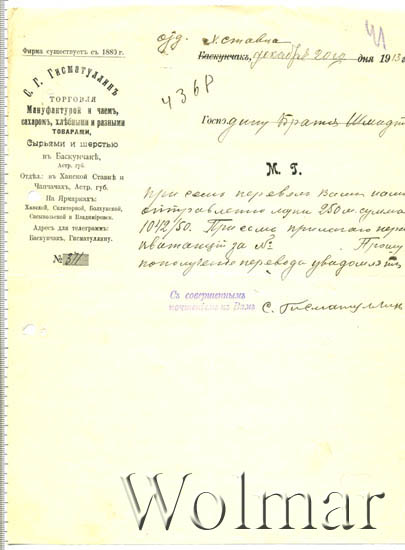 Фирма существуетъ съ 1880 г.
С. Г. Гисматуллинъ
ТОРГОВЛЯ
Мануфактурой и чаемъ,
сахаромъ, хлѣбными и разными
ТОВАРАМИ,
Сырьями и шерстью
въ Баскунчакѣ,
Астр. губ.
Отдѣл.: въ Ханской Ставкѣ и
Чапчачахъ, Астр. губ.
На Ярмаркахъ:
Ханской, Баскунской,
и Владимірской.
Адресъ для телеграммъ:
Баскунчакъ, Гисматуллину.
№ 371
отд. Х. ставка
Баскунчакъ, декабря 20го дня 1913
41
436Р
Господину Братья Шмидтъ
М. Г.
При семъ перевелъ Вашъ
отправлено муки 250 м. сумма
1042/50. При семъ прилагаю
за №. Прошу
по полученіе перевода уведомлять
Съ совершеннымъ
почтеніемъ къ Вамъ С. Гисматуллин
Wolmar